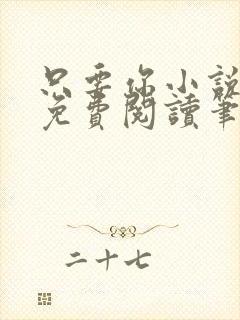 只要你小說
免費閱讀筆
二十七